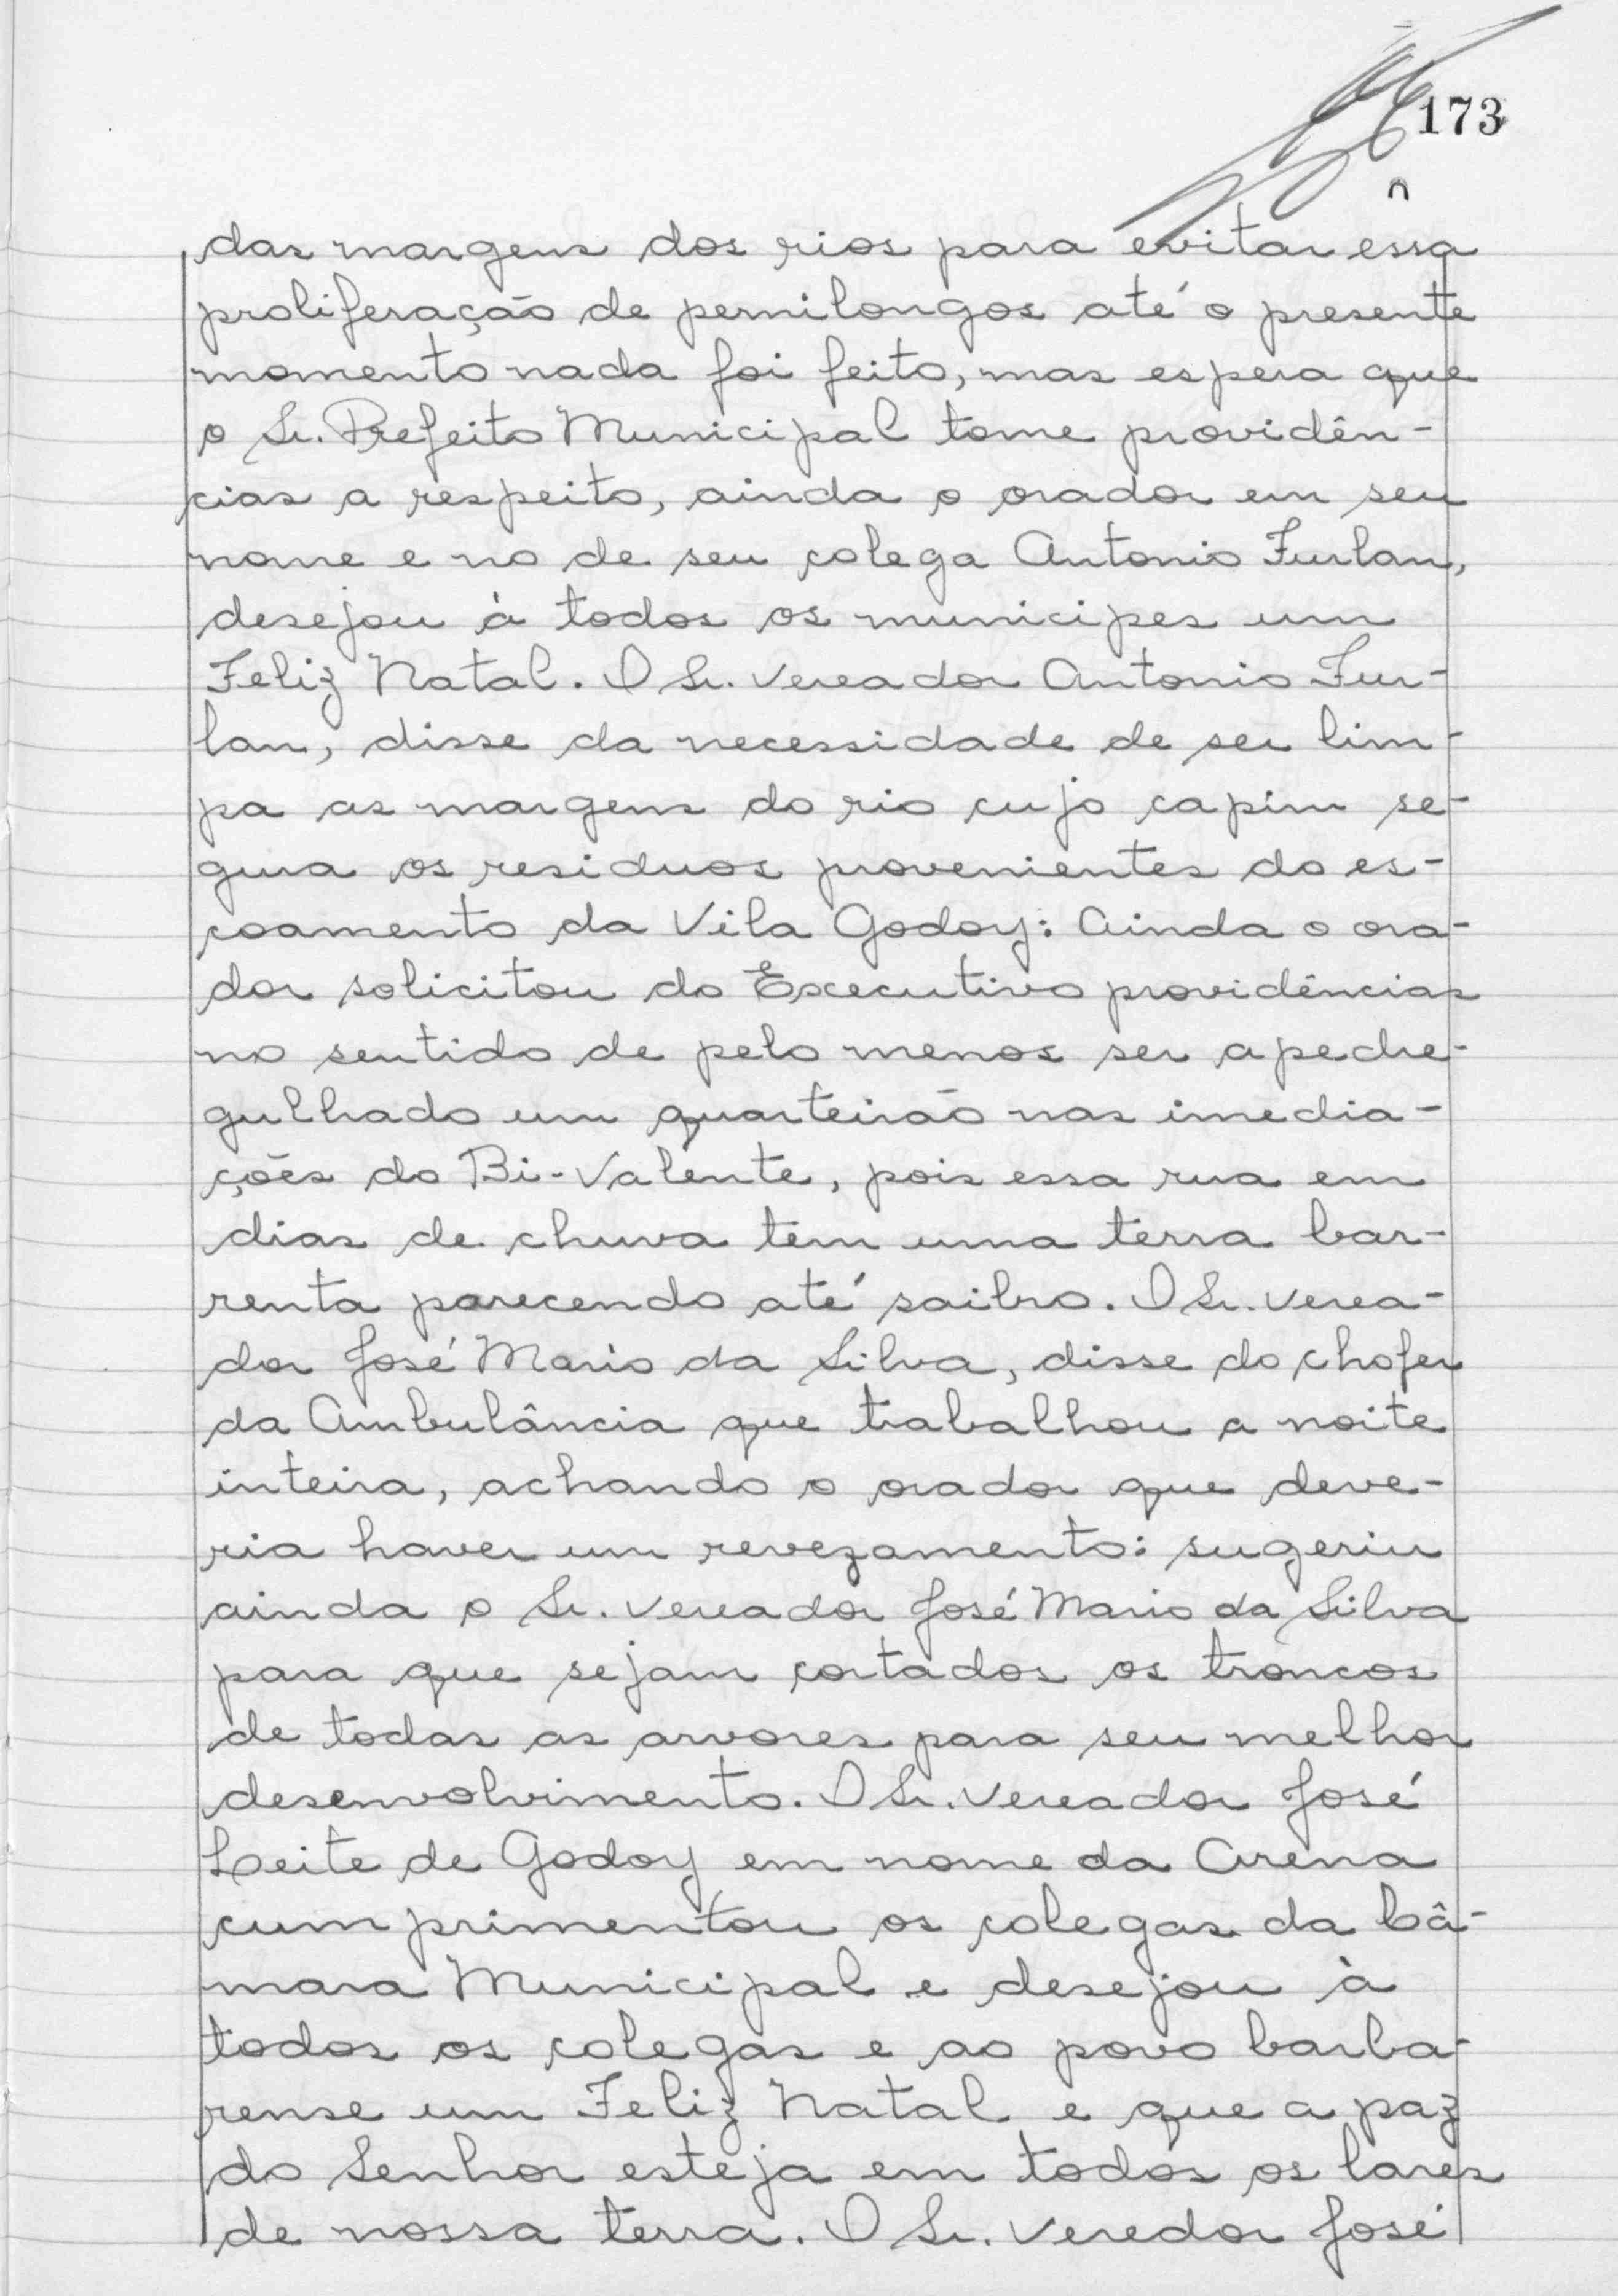 173
das margens dos rios para evitar essa
proliferação de pernilongos até o presente
momento nada foi feito, mas espera que
o Sr. Prefeito Municipal tome providên-
cias a respeito, ainda o orador em seu
nome e no de seu colega Antonio Furlan,
desejou à todos os municipes um
Feliz Natal. O Sr. Vereador Antonio Fur-
lan, disse da necessidade de ser lim-
pa as margens do rio cujo capim se-
gura os residuos provenientes do es-
coamento da Vila Godoy: Ainda o ora-
dor solicitou do Executivo providências
no sentido de pelo menos ser apedre-
gulhado um quarteirão nas imedia-
ções do Bi-Valente, pois essa rua em
dias de chuva tem uma terra bar-
renta parecendo até saibro. O Sr. Verea-
dor José Mario da Silva, disse do chofer
da Ambulância que trabalhou a noite
inteira, achando o orador que deve-
ria haver um revezamento: sugeriu
ainda o Sr. Vereador José Mario da Silva
para que sejam cortados os troncos
de todas as arvores para seu melhor
desenvolvimento. O Sr. Vereador José
Leite de Godoy em nome da Arena
cumprimentou os colegas da Câ-
mara Municipal e desejou à
todos os colegas e ao povo barba-
rense um Feliz Natal e que a paz
do Senhor esteja em todos os lares
de nossa terra. O Sr. Veredor José